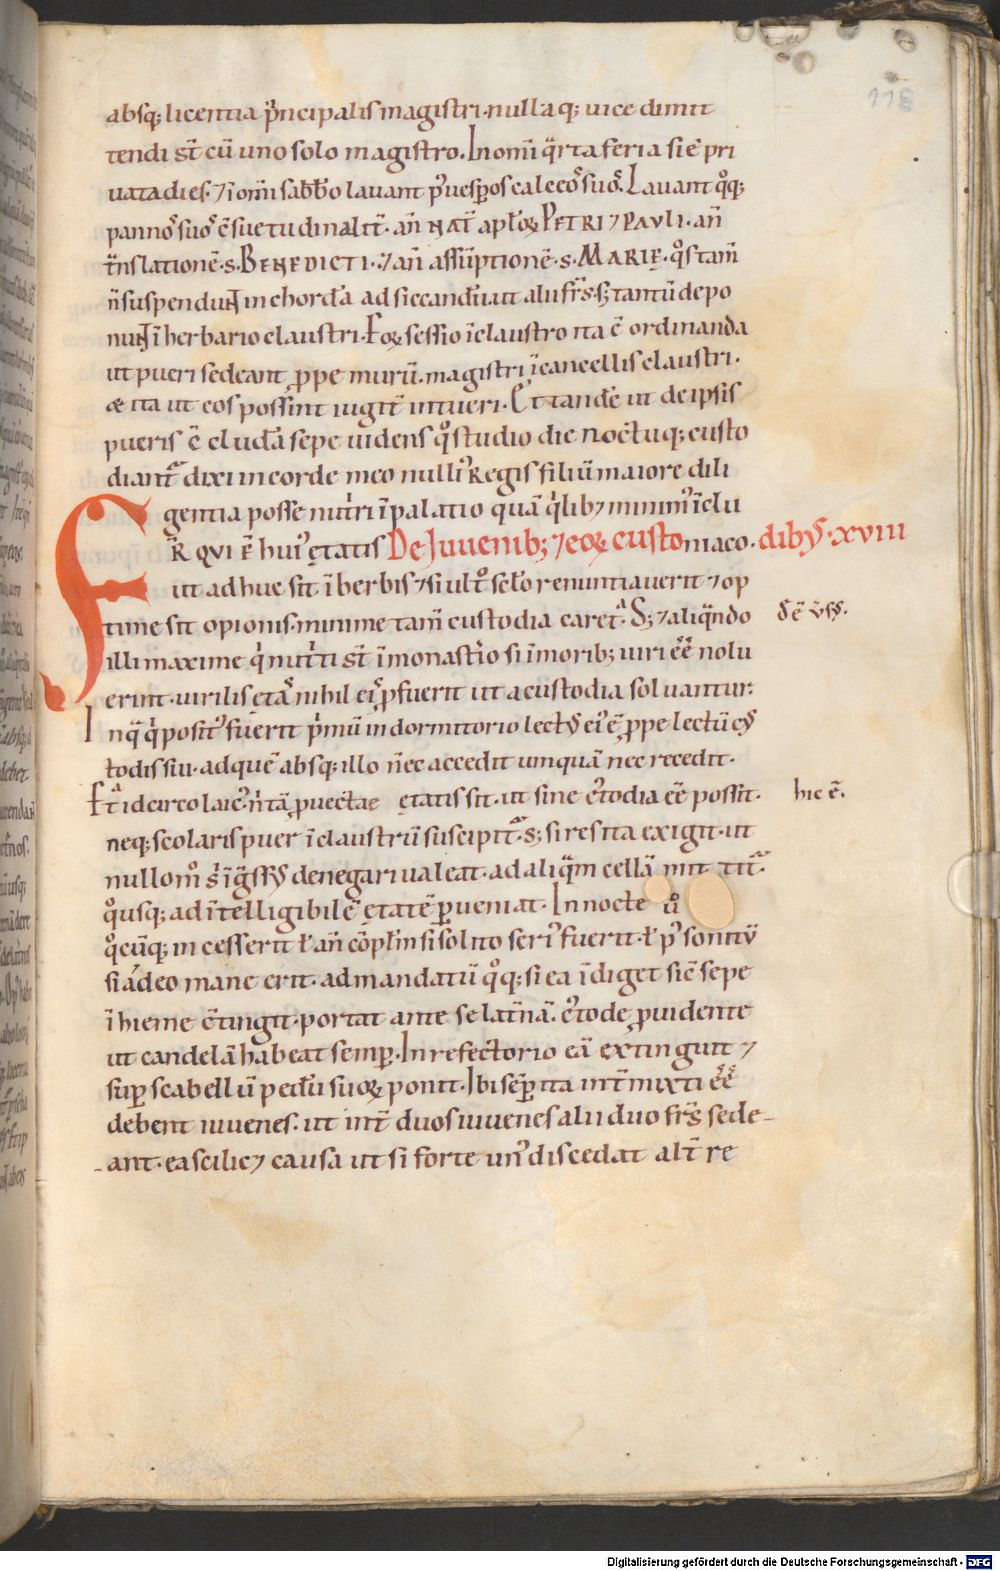 118
absq; licentia p̍ncipalis magistri. nulla q; uice dimit
tendi st̄ cū uno solo magistro. In om̄i q̍rta feria si ē pri
uata dies. ⁊ ī om̄i sabb̄o lauant p̍ uesp̄os caleceos suos. Lauant q̊q;
pannos suos ꝯsuetudinalit̄. añ NAT̄ ap̄loꝝ PETRI ⁊ PAVLI. añ
t̍nslationē. s. BENEDICTI. ⁊ añ assūptionē. s. MARIĘ. q̊s tam̄
n̄ suspendunt in chorda ad siccandū ut alii fr̄s. s; tantū depo
nunt ī herbario claustri. Eoꝝ sessio ī claustro ita ē ordinanda
ut pueri sedeant ꝓpe murū. magistri ī cancellis claustri.
& ita ut eos possint iugit̄ intueri. Et tandē ut de ipsis
pueris ē cludā sepe uidens q̊ studio die noctuq; custo
diant᷑ dixi in corde meo nulli᷒ Regis filiū maiore dili
gentia posse nut̍ri ī palatio quā q̍lib; minim᷒ ī clu
niaco. De Juuenib; ⁊ eoꝝ custodib;. XVIII
FR̄ QVI Ē hui᷒ ętatis
ut adhuc sit ī berbis ⁊ si ult̊ sclo renuntiauerit ⁊ op
time sit opionis. minime tam̄ custodia caret᷑. S; ⁊ aliq̄ndo
illi maxime q̍ nut̍ti st̄ ī monast̍io si ī morib; uiri ēē nolu
erint. uirilis ętas nihil eis ꝓfuerit ut a custodia soluantur.
In q̍ q̍ posit᷒ fuerit p̍mū in dormitorio lect᷒ ei᷒ ē ꝓpe lectū cus
todis sui. ad quē absq; illo nec accedit umquā nec recedit.
Et idcirco laic᷒ n̍ tā ꝓuectae ętatis sit. ut sine c᷒todia ēē possit.
neq; scolaris puer ī claustrū suscipit᷑. s; si res ita exigit. ut
nullom̊ s̍ īg̍ss᷒ denegari ualeat. ad aliq̄m cellā mittit᷑.
q̊usq; ad ītelligibilē ętatē ꝑueniat. In nocte ů
q̊cūq; incesserit ł añ cōpl̄in si solito seri᷒ fuerit. ł p᷒ sonitū
si adeo mane erit. ad mandatū q̊q; si ea īdiget sic̄ sepe
ī hieme ꝯtingit. portat ante se lat̄nā. c᷒tode ꝓuidente
ut candelā habeat semꝑ. In refectorio eā extinguit ⁊
suꝑ scabellū pedū suoꝝ ponit. Ibi sēꝑ ita int̄mixti ēē
debent iuuenes. ut int̄ duos iuuenes alii duo fr̄s sede
ant. ea scilic; causa ut si forte un᷒ discedat alt̄ re
hic ē.